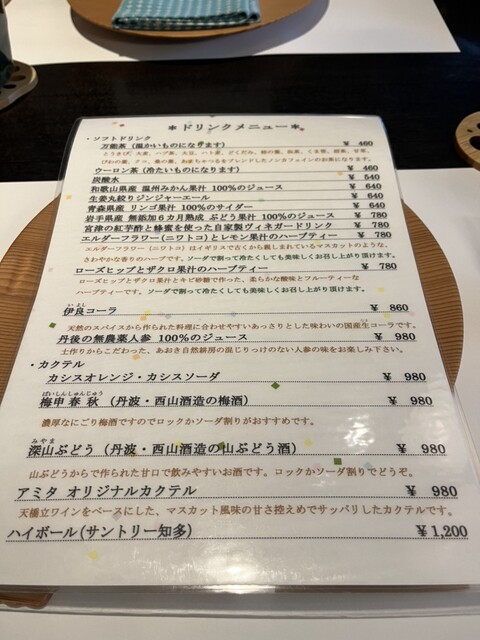 ＊ドリンクメニュー＊
・ソフトドリンク
万能茶（温かいものになります） ¥ 460
びわの葉、クコ、桑の葉、あまちゃづるをブレンドしたノンカフェインのお茶になります。
ウーロン茶（冷たいものになります） ¥ 460
炭酸水 ¥ 540
和歌山県産 温州みかん果汁 100%のジュース ¥ 640
生姜丸絞りジンジャーエール ¥ 640
青森県産 リンゴ果汁 100%のサイダー ¥ 640
岩手県産 無添加６カ月熟成 ぶどう果汁 100%のジュース ¥ 780
宮津の紅芋酢と蜂蜜を使った自家製ヴィネガードリンク ¥ 780
エルダーフラワー（ニワトコ）とレモン果汁のハーブティー ¥ 780
エルダーフラワー（ニワトコ）はイギリスで古くから親しまれているマスカットのような、
さわやかな香りのハーブです。ソーダで割って冷たくしても美味しくお召し上がり頂けます。
ローズヒップとザクロ果汁のハーブティー ¥ 780
ローズヒップとザクロ果汁とキビ砂糖で作った、柔らかな酸味とフルーティーな
ハーブティーです。ソーダで割って冷たくしても美味しくお召し上がり頂けます。
いよし
伊良コーラ ¥ 860
天然のスパイスから作られた料理に合わせやすいあっさりとした味わいの国産生コーラです。
丹後の無農薬人参 100%のジュース ¥ 980
土作りからこだわった、あおき自然耕房の混じりっけのない人参の味をお楽しみ下さい。
・カクテル
カシスオレンジ・カシスソーダ ¥ 980
ばいしんしゅんじゅう
梅申春秋（丹波・西山酒造の梅酒） ¥ 980
濃厚なにごり梅酒ですのでロックかソーダ割りがおすすめです。
みやま
深山ぶどう（丹波・西山酒造の山ぶどう酒） ¥ 980
山ぶどうからで作られた甘口で飲みやすいお酒です。ロックかソーダ割りでどうぞ。
アミタ オリジナルカクテル ¥ 980
天橋立ワインをベースにした、マスカット風味の甘さ控えめでサッパリしたカクテルです。
ハイボール（サントリー知多） ¥ 1,200